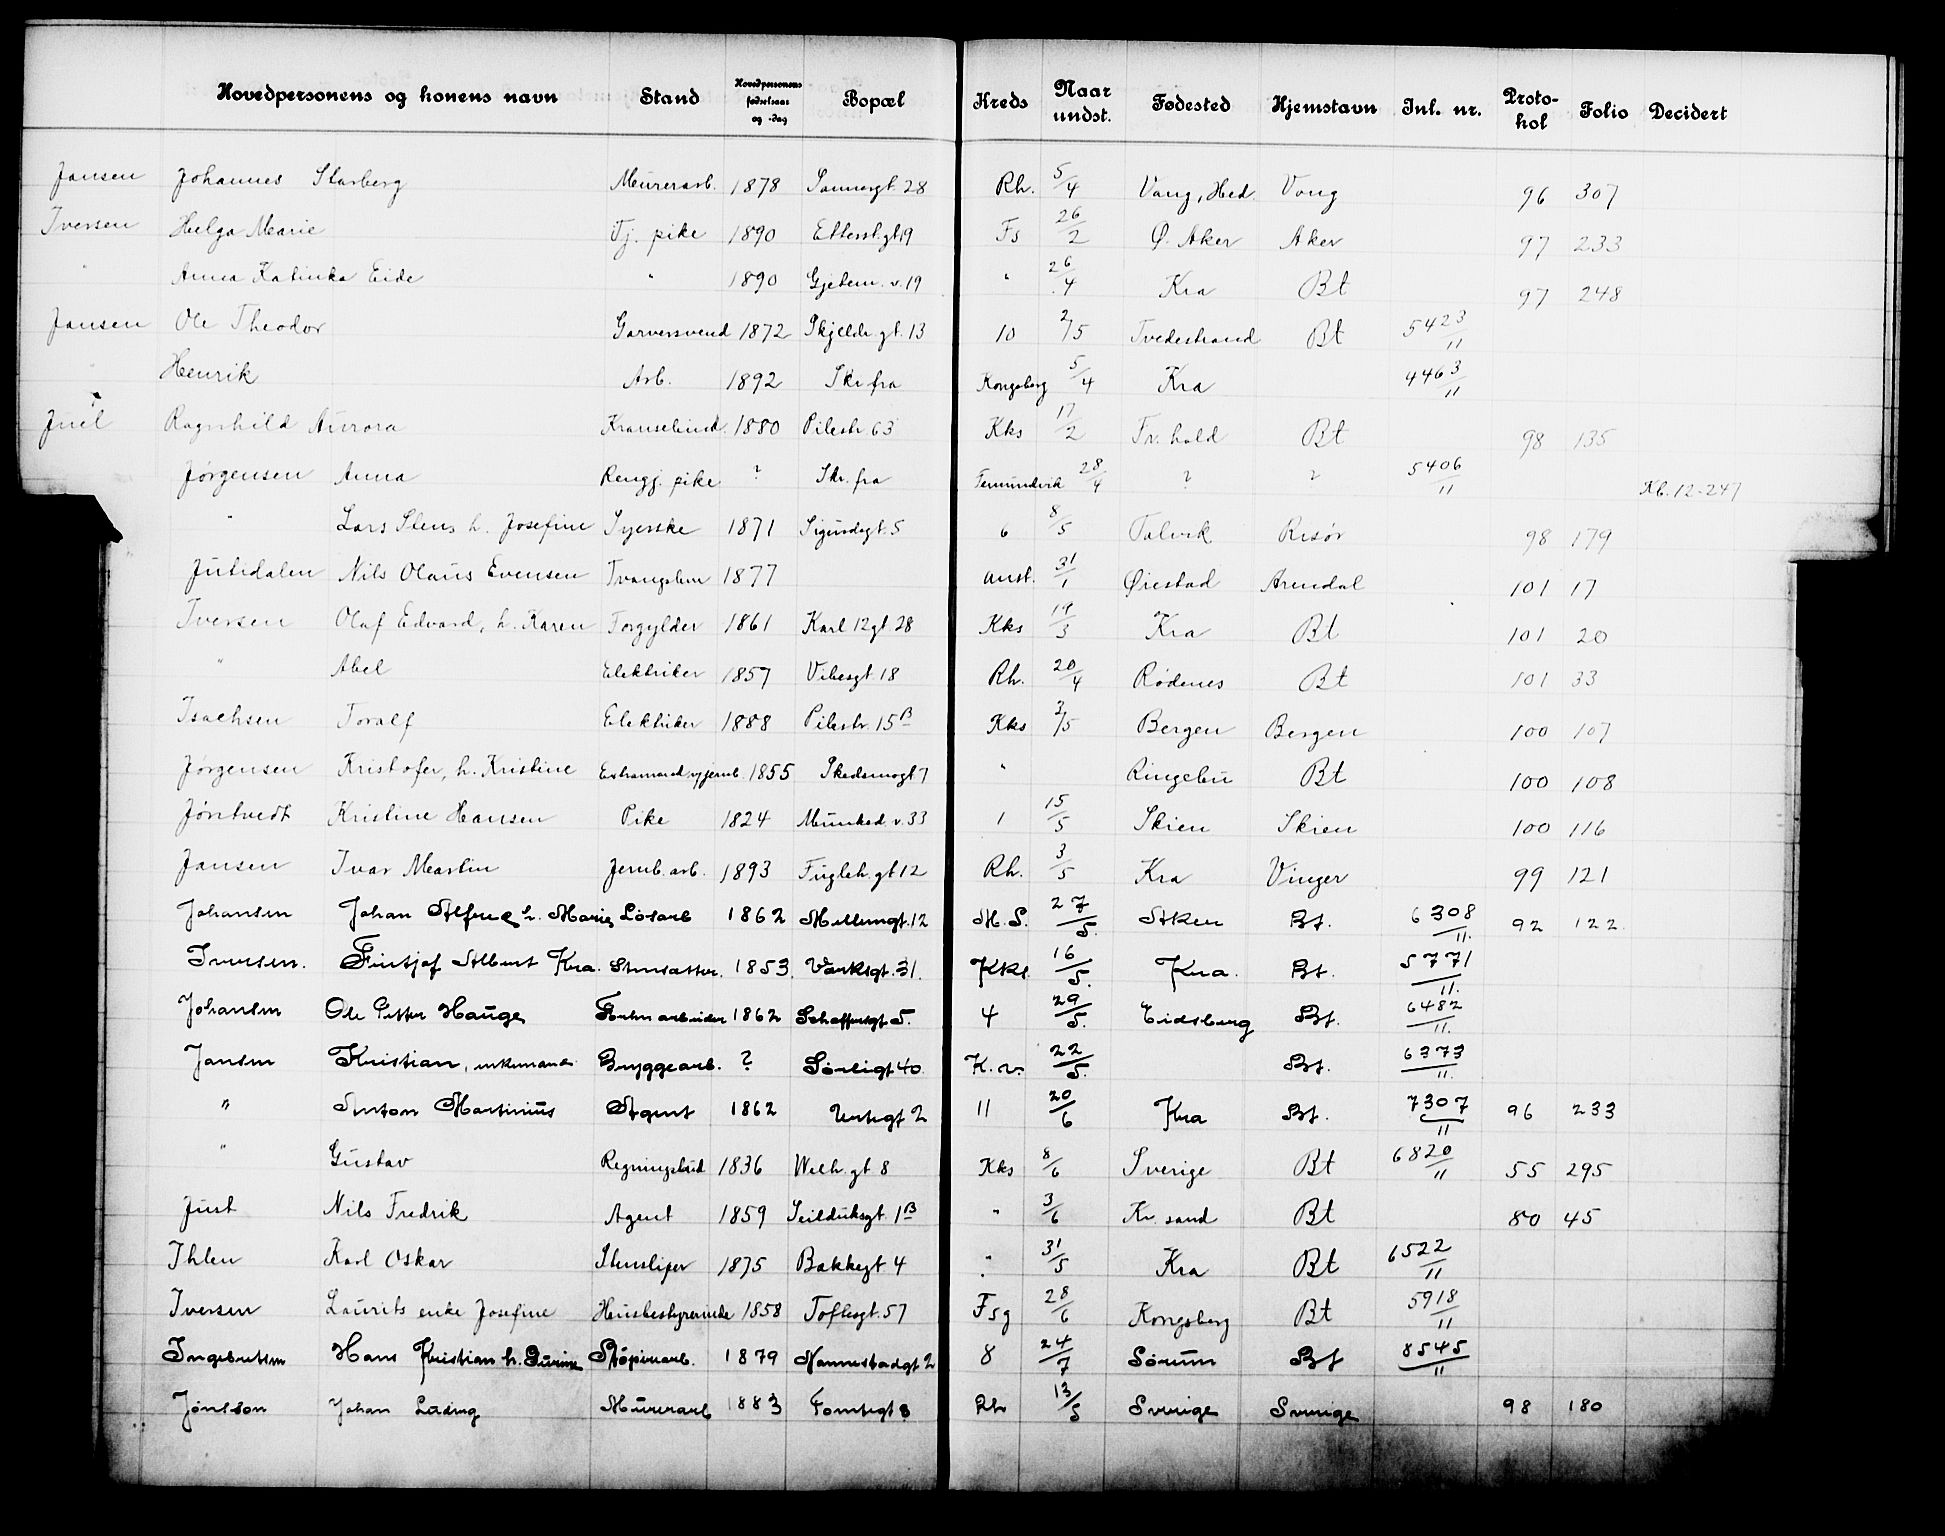 Hovedpersonens og konens navn Stand Hovedpersonens fødselsaar og -dag Bopæl Kreds Naar undst. Fødested Hjemstavn Inl. nr. Protokol Folio Decidert
Jansen Johannes Starberg Murerarb. 1878 Sannergt. 28 Rh. 5/4 Vang, Hed. Vang 96 307
Iversen Helga Marie Tj. pike 1890 Etterst.gt 19 Fs 26/2 Ø. Aker Aker 97 233
" Anna Katinka Eide " 1890 Gjetem. v. 19 " 26/4 Kra Bt 97 248
Jansen Ole Theodor Garversvend 1872 Skjeldr. gt. 13 10 2/5 Tvedestrand Bt 5423/11
Henrik Arb. 1892 Skr. fra Kongsberg 5/4 Kra 4463/11
Juel Ragnhild Aurora Kransebind. 1880 Pilestr. 63 Kks 17/2 Fr. hald Bt 98 135
Jørgensen Anna Rengj. pike ? Skr. fra Femundvik 28/4 ? ? 5406/11 Kb. 12-247
" Lars Stens h. Josefine Syerske 1871 Sigurdsgt. 5 6 8/5 Talvik Risør 98 179
Jutidalen Nils Olaus Evensen Tvangslem 1877 anst. 31/1 Øiestad Arendal 101 17
Iversen Olaf Edvard, h. Karen Forgylder 1861 Karl 12 gt. 28 Kks 19/3 Kra Bt 101 20
" Abel Elektriker 1857 Vibesgt. 18 Rh. 20/4 Rødenes Bt 101 33
Isachsen Toralf Elektriker 1888 Pilestr. 15 B Kks 3/5 Bergen Bergen 100 107
Jørgensen Kristofer, h. Kristine Extramand v/jernb. 1855 Skedsmogt 7 " Ringebu Bt 100 108
Jøntvedt Kristine Hansen Pike 1824 Munked. v. 33 1 15/5 Skien Skien 100 116
Jansen Ivar Martin Jernb. arb. 1893 Fugleh. gt 12 Rh. 3/5 Kra Vinger 99 121
Johansen Johan Alfred h. Marie Løsarb 1862 Mellumgt. 12 M. S. 27/5. Aker Bt. 6308/11. 92 122.
Iversen. Fintjof Albert Kra. Stensætter. 1853. Værksgt. 31. Kks. 16/5. Kra. Bt. 5771/11.
Johansen Ole Petter Hauge Fortøiarbeider 1862 Schaffersgt 5. 4 29/5. Eidsberg Bt. 6482/11.
Jansen Kristian, enkemand Bryggearb. ? Sørligt 40. K. v. 22/5. Bt. 6373/11.
" Anton Martinius Agent 1862 Urtegt 2 11 20/6 Kra Bt. 7307/11 96 233
" Gustav Regningsbud 1836 Welh. gt. 8 Kks 8/6 Sverige Bt 6820/11 55 295
Just Nils Fredrik Agent 1859 Seilduksgt. 1 B " 3/6 Kr. sand Bt 80 45
Ihlen Karl Oskar Stensliper 1875 Bakkegt 4 " 31/5 Kra Bt 6522/11
Iversen Laurits enke Josefine Husbestyrerinde 1858 Toftesgt. 57 Fsg 28/6 Kongsberg Bt 5918/11
Ingebretsen Hans Kristian h. Gurine Støperiarb. 1879 Nannestadgt 2 8 24/7 Sørum Bt 8545/11
Jønsson Johan Ludvig Murerarb 1883 Tomtegt 8 Rh 13/5 Sverige Sverige 98 180